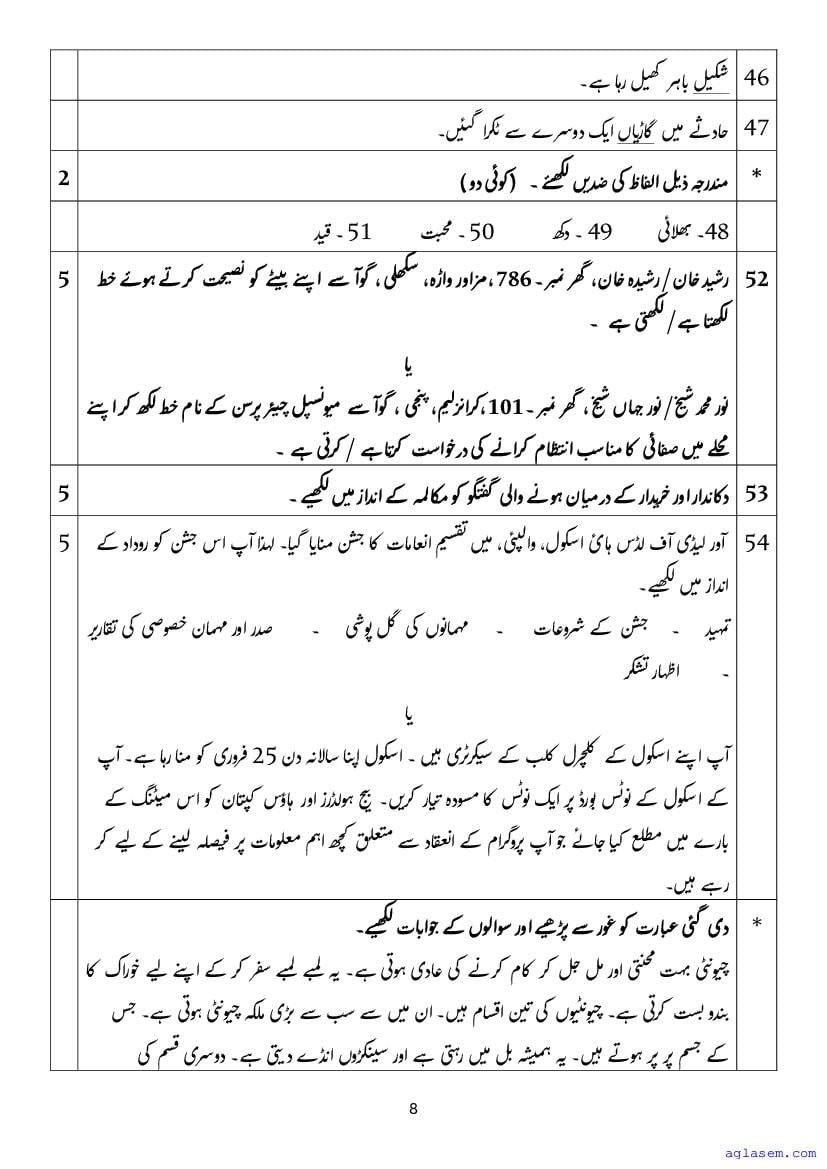 46 شکیل باہر کھیل رہا ہے۔
47 حادثے میں گاڑیاں ایک دوسرے سے ٹکرا گئیں۔
* مندرجہ ذیل الفاظ کی ضدیں لکھئے ۔ (کوئی دو ) 2
48۔ بھلائی 49 ۔ دکھ 50 ۔ محبت 51 ۔ قید
52 رشید خان / رشیدہ خان، گھر نمبر ۔ 786 ،مزاور واڑہ، سکھلی ، گوآ سے اپنے بیٹے کو نصیحت کرتے ہوئے خط 5
لکھتا ہے / لکھتی ہے ۔
یا
نور محمد شیخ / نور جہاں شیخ ، گھر نمبر ۔ 101 ،کرانزلیم، پنجی ، گوآ سے میونسپل چیئر پرسن کے نام خط لکھ کر اپنے
محلے میں صفائی کا مناسب انتظام کرانے کی درخواست کرتا ہے / کرتی ہے ۔
53 دکاندار اور خریدار کے درمیان ہونے والی گفتگو کو مکالمہ کے انداز میں لکھیے ۔ 5
54 آور لیڈی آف لڈس ہائ اسکول، والپئی، میں تقسیم انعامات کا جشن منایا گیا۔ لہذا آپ اس جشن کو روداد کے 5
انداز میں لکھیے۔
تمہید ۔ جشن کے شروعات ۔ مہمانوں کی گل پوشی ۔ صدر اور مہمان خصوصی کی تقاریر
۔ اظہار تشکر
یا
آپ اپنے اسکول کے کلچرل کلب کے سیکرٹری ہیں ۔ اسکول اپنا سالانہ دن 25 فروری کو منا رہا ہے۔ آپ
کے اسکول کے نوٹس بورڈ پر ایک نوٹس کا مسودہ تیار کریں۔ بیج ہولڈرز اور ہاؤس کپتان کو اس میٹنگ کے
بارے میں مطلع کیا جائے جو آپ پروگرام کے انعقاد سے متعلق کچھ اہم معلومات پر فیصلہ لینے کے لیے کر
رہے ہیں۔
* دی گئی عبارت کو غور سے پڑھیے اور سوالوں کے جوابات لکھیے۔
چیونٹی بہت محنتی اور مل جل کر کام کرنے کی عادی ہوتی ہے۔ یہ لمبے لمبے سفر کر کے اپنے لیے خوراک کا
بندو بست کرتی ہے۔ چیونٹیوں کی تین اقسام ہیں۔ ان میں سے سب سے بڑی ملکہ چیونٹی ہوتی ہے۔ جس
کے جسم پر پر ہوتے ہیں۔ یہ ہمیشہ بل میں رہتی ہے اور سینکڑوں انڈے دیتی ہے۔ دوسری قسم کی
8
aglasem.com